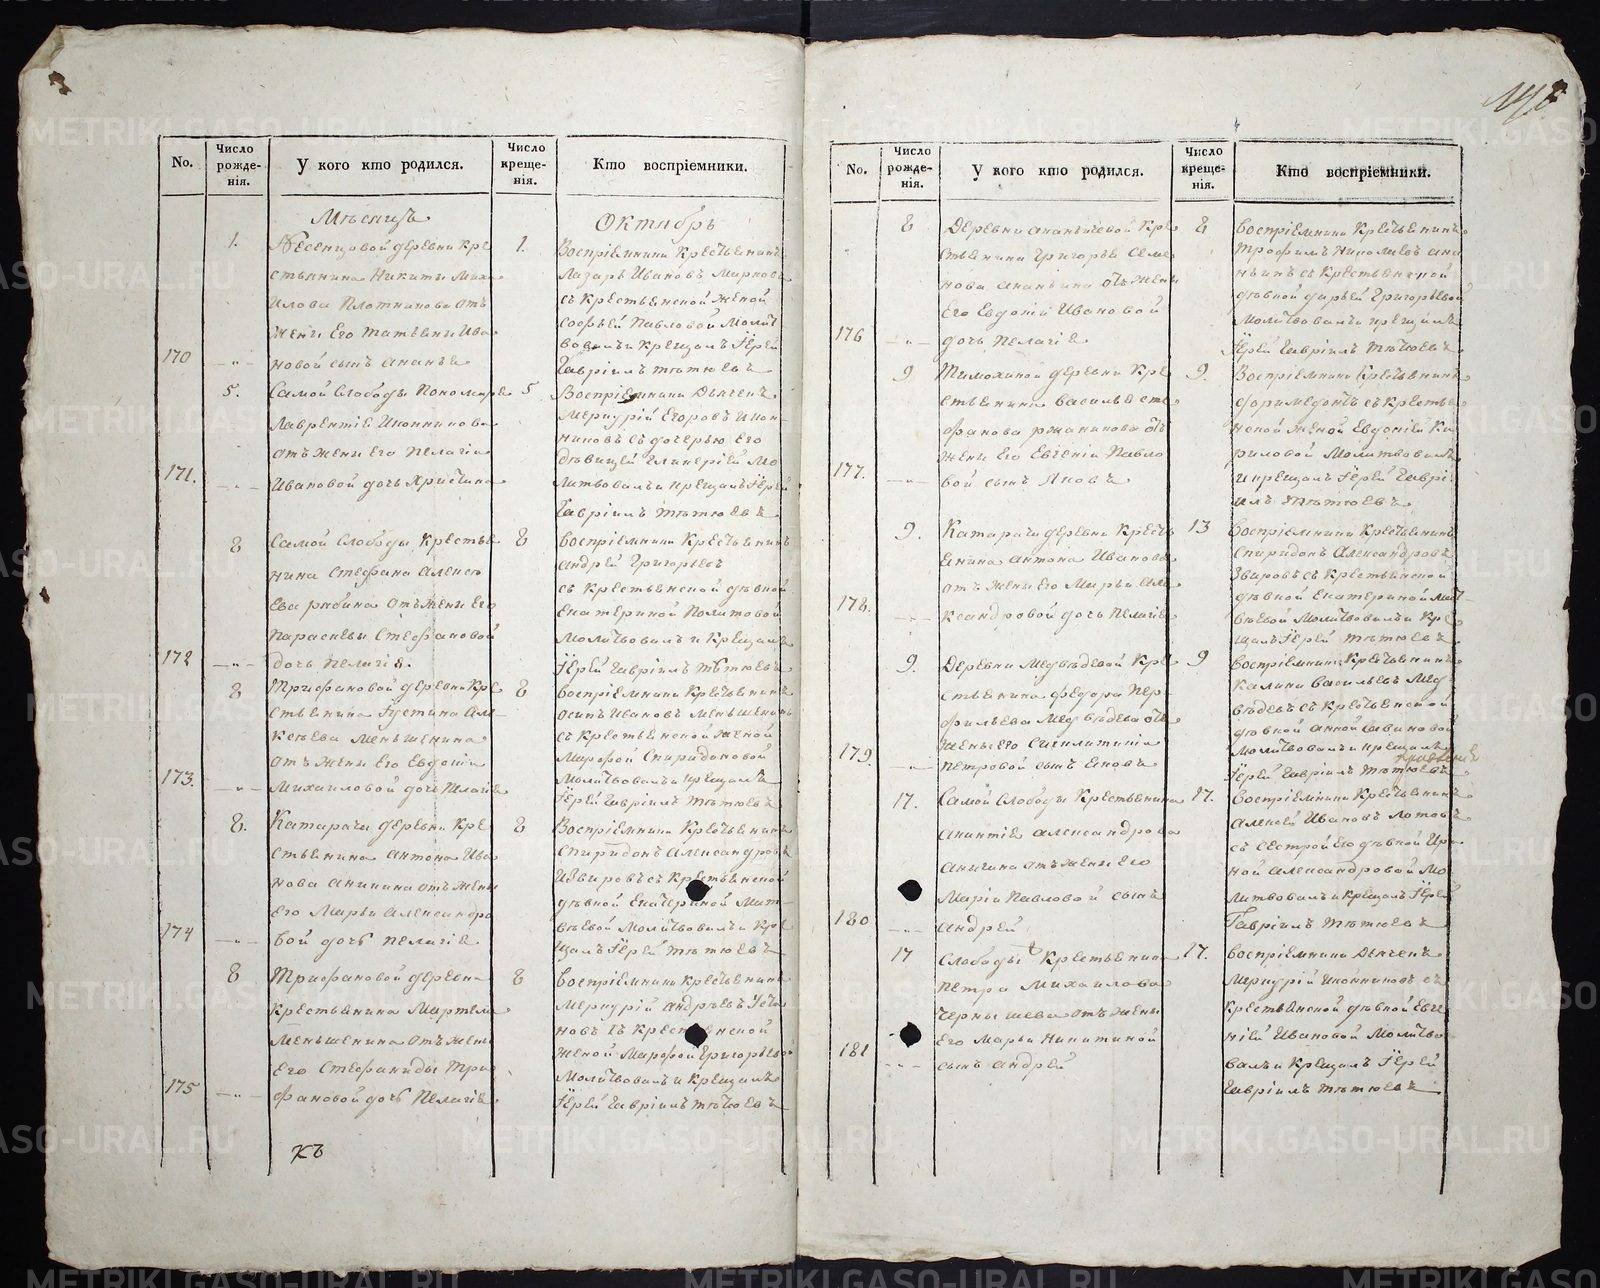 No.
Число рожде- нія.
У кого кто родился.
Число креще- нія.
Кто воспріемники.
Мѣсяцъ
Октябрь
1.
деревни Кре
стьянина Никиты Миха
илова Плотникова отъ
жены Его Татьяны Ива
170
новой сынъ Ананіе
1.
Воспріемники Крестьянинъ
Лазарь Ивановъ Марковъ
съ Крестьянской женой
Софьей Павловой Молит
вовалъ и Крещалъ Іерей
Гавріилъ Тѣтюевъ
5.
Самой Слободы Пономаря
Лаврентіе Иконникова
отъ жены Его Пелагіи
171.
Ивановой дочь Христина
5
Воспріемники Дьячекъ
Меркурій Егоровъ Икон
никовъ съ дочерью Его
дѣвицей Гликеріей Мо
литвовалъ и крещалъ Іерей
Гавріилъ Тѣтюевъ
8
Самой Слободы Крестья
нина Стефана Алексѣ
ева рябина отъ жены Его
Параскевы Стефановой
172
дочь Пелагіе.
8
Воспріемники Крестьянинъ
Андрей Григорьевъ
съ Крестьянской дѣвкой
Екатериной Политовой
Молитвовалъ и Крещалъ
Іерей Гавріилъ Тѣтюевъ
8
Трифановой деревни Кре
стьянина Густина Але
ксѣева Меньшенина
отъ жены Его Евдокіи
173.
Михаиловой дочь Пелагіе
8
Воспріемники Крестьянинъ
Осипъ Ивановъ Меньшенинъ
съ Крестьянской женой
Марфой Спиридоновой
Молитвовалъ и крещалъ
Іерей Гавріилъ Тѣтюевъ
8.
Катарачи деревни Кре
стьянина Антона Ива
нова Аникина отъ жены
Его Марьи Александро
174
вой дочь Пелагіе
8
Воспріемники Крестьянинъ
Спиридонъ Александровъ
Извировъ съ Крестьянской
дѣвкой Екатериной Мат
вѣевой Молитвовалъ и Кре
щалъ Іерей Тѣтюевъ
8
Трифановой деревни
Крестьянина Мартема
Меньшенина отъ жены
Его Стефаниды Три
175
фановой дочь Пелагіе
8
Воспріемники Крестьянинъ
Меркурій Андрѣевъ Усти
новъ съ Крестьянской
женой Марфой Григорьевой
Молитвовалъ и Крещалъ
Іерей Гавріилъ Тѣтюевъ
No.
Число рожде- нія.
У кого кто родился.
Число креще- нія.
Кто воспріемники.
8
Деревни Ананьичевой Кре
стьянина Григорье Семе
нова Ананьина отъ жены
Его Евдокіи Ивановой
176
дочь Пелагіе
8
Воспріемники Крестьянинъ
Трофимъ Николаевъ Ана
ньинъ съ Крестьянской
дѣвкой Дарьей Григорьевой
Молитвовалъ и крещалъ
Іерей Гавріилъ Тѣтюевъ
9.
Тимохиной деревни Кре
стьянина Василье Сте
фанова ржанникова отъ
жены Его Евгеніи Павло
177.
вой сынъ Яковъ
9.
Воспріемники Крестьянинъ
Форимедонтъ съ Крестья
нской женой Евдокіей Ки
риловой Молитвовалъ
и крещалъ Іерей Гаврі
илъ Тѣтюевъ
9.
Катарачи деревни Кресть
янина Антона Иванова
отъ жены Его Марьи Але
178.
ксандровой дочь Пелагіе
13
Воспріемники Крестьянинъ
Спиридонъ Александровъ
Звировъ съ Крестьянской
дѣвкой Екатериной Мат
вѣевой Молитвовалъ и Кре
щалъ Іерей Тѣтюевъ
9.
Деревни Медвѣдевой Кре
стьянина Федора Пер
фильева Медвѣдева отъ
жены Его
179.
Петровой сынъ Яковъ
9
Воспріемники Крестьянинъ
Калина Васильевъ Мед
вѣдевъ съ Крестьянской
дѣвкой Анной
Молитвовалъ и крещалъ
Іерей Гавріилъ Тѣтюевъ
17.
Самой Слободы Крестьянина
Александрова
Аникина отъ жены Его
Маріи Павловой сынъ
180
Андрей
17.
Воспріемники Крестьянинъ
Алексѣй Ивановъ
съ сестрой Его дѣвкой Ири
ной Александровой Мо
литвовалъ и Крещалъ Іерей
Гавріилъ Тѣтюевъ
17
Слободы Крестьянина
Петра Михаилова
Чернышева отъ жены
Его Марьи Никитиной
181
сынъ Андрей
17.
Воспріемники Дьячекъ
Меркурій Иконниковъ съ
Крестьянской дѣвкой Евге
ніей Ивановой Молитво
валъ и Крещалъ Іерей
Гавріилъ Тѣтюевъ
METRIKI.GASO-URAL.RU